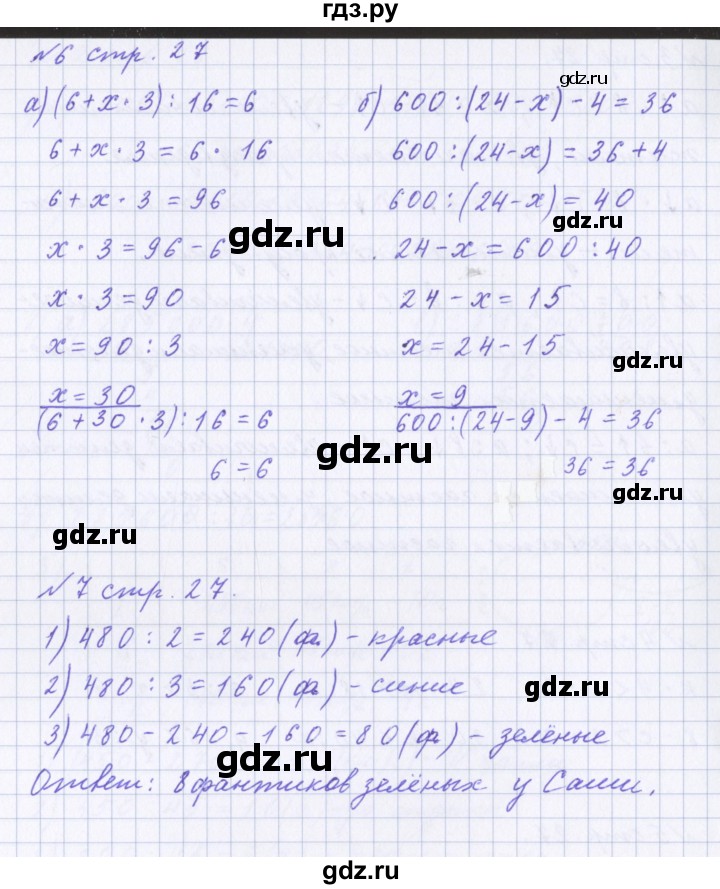 гдз.ру
№6 стр. 27
gdz.ru
а) (6+х·3):16=6
6+х·3=6·16
6+х·3=96
х·3=96-6
х·3=90
х=90:3
х=30
(6+30·3):16=6
6=6
б) 600:(24-х)-4=36
600:(24-х)=36+4
600:(24-х)=40
24-х=600:40
24-х=15
х=24-15
х=9
600:(24-9)-4=36
36=36
gdz.ru
gdz.ru
gdz.ru
gdz.ru
gdz.ru
gdz.ru
№7 стр. 27.
1) 480:2=240(ф.)-красные
2) 480:3=160(ф.)-синие
gdz.ru
3) 480-240-160=80(ф.)-зелёные
gdz.ru
Ответ: 8 фантиков зелёных у Саши.
gdz.ru